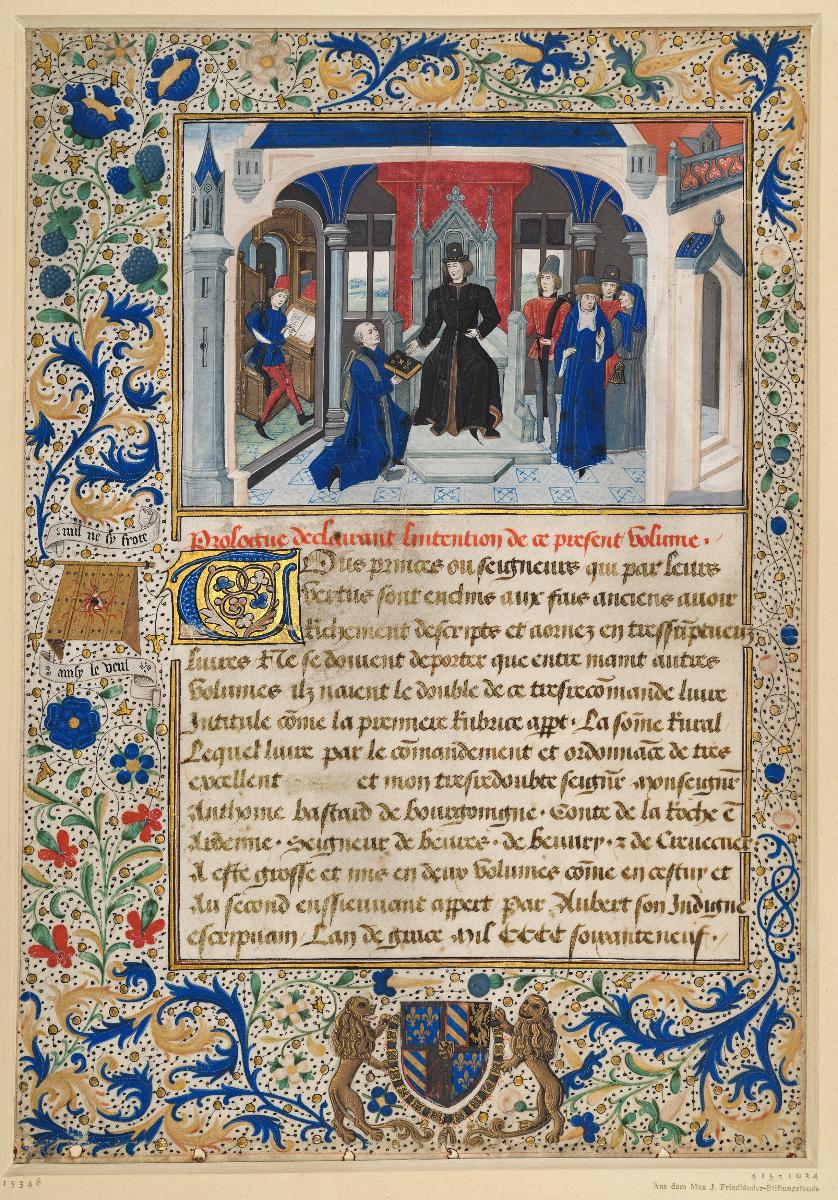 Prologue declairant lintention de ce present volume.
Tous princes ou seigneurs qui par leurs
vertus sont enclins aux fais anciens avoir
Richement descripts et aornez en tressumptueux
livres Ne se doivent deporter que entre maint autres
volumes ilz naient le double de ce tresrecōmande livre
Intitule cōme la premiere Rubrice appt. La sōme Rural
Lequel livre par le cōmandement et ordonnāce de tres
excellent et mon tresredoubte seignr̄ Monseignr̄
Anthoine bastard de bourgoingne. Conte de la Roche ē
Ardenne. Seigneur de beures. de beuury. z de Crevecuer
A este grosse et mis en deux volumes cōme en cestuy et
Au second enssieuuant appert par Aubert son Indigne
escripuain Lan de grace Mil CCCC soixanteneuf.
nul ne sy frote
ainsy le veul
15348
415-1934
Aus dem Max J. Friedländer-Stiftungsfonds